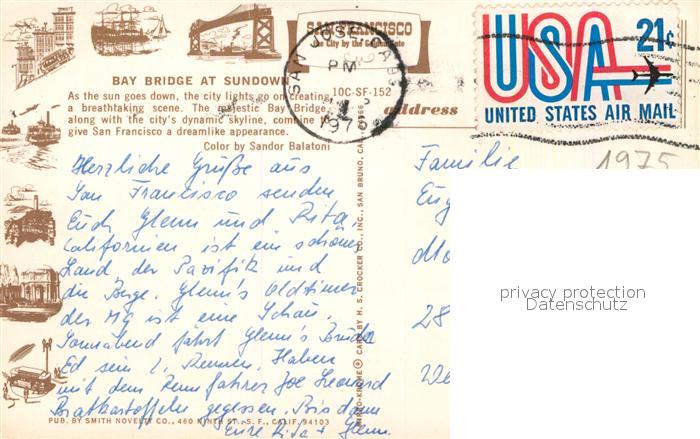 SAN FRANCISCO
The City by the Golden Gate
SAN JOSE, CA
PM
1975
USA 21¢
UNITED STATES AIR MAIL
BAY BRIDGE AT SUNDOWN
10C-SF-152
As the sun goes down, the city lights go on creating
a breathtaking scene. The majestic Bay Bridge,
along with the city's dynamic skyline, combine to
give San Francisco a dreamlike appearance.
Color by Sandor Balatoni
address
1975
Herzliche Grüße aus
San Francisco senden
Euch Glenn und Rita,
Californien ist ein schönes
Land, der Pazifik und
die Berge. Glenn's Oldtimer
der Mg ist eine Schau.
Sonnabend fährt Glenn's Bruder
Ed sein 1. Rennen. Haben
mit dem Rennfahrer Joe Leonard
Bratkartoffeln gegessen. Bis dann
Eure Rita + Glenn.
Familie
Eug
Mo
28
We
MIRRO-KROME® CARD BY H. S. CROCKER CO., INC., SAN BRUNO, CAL. 94066
PUB. BY SMITH NOVELTY CO., 460 NINTH ST., S.F., CALIF. 94103
privacy protection
Datenschutz